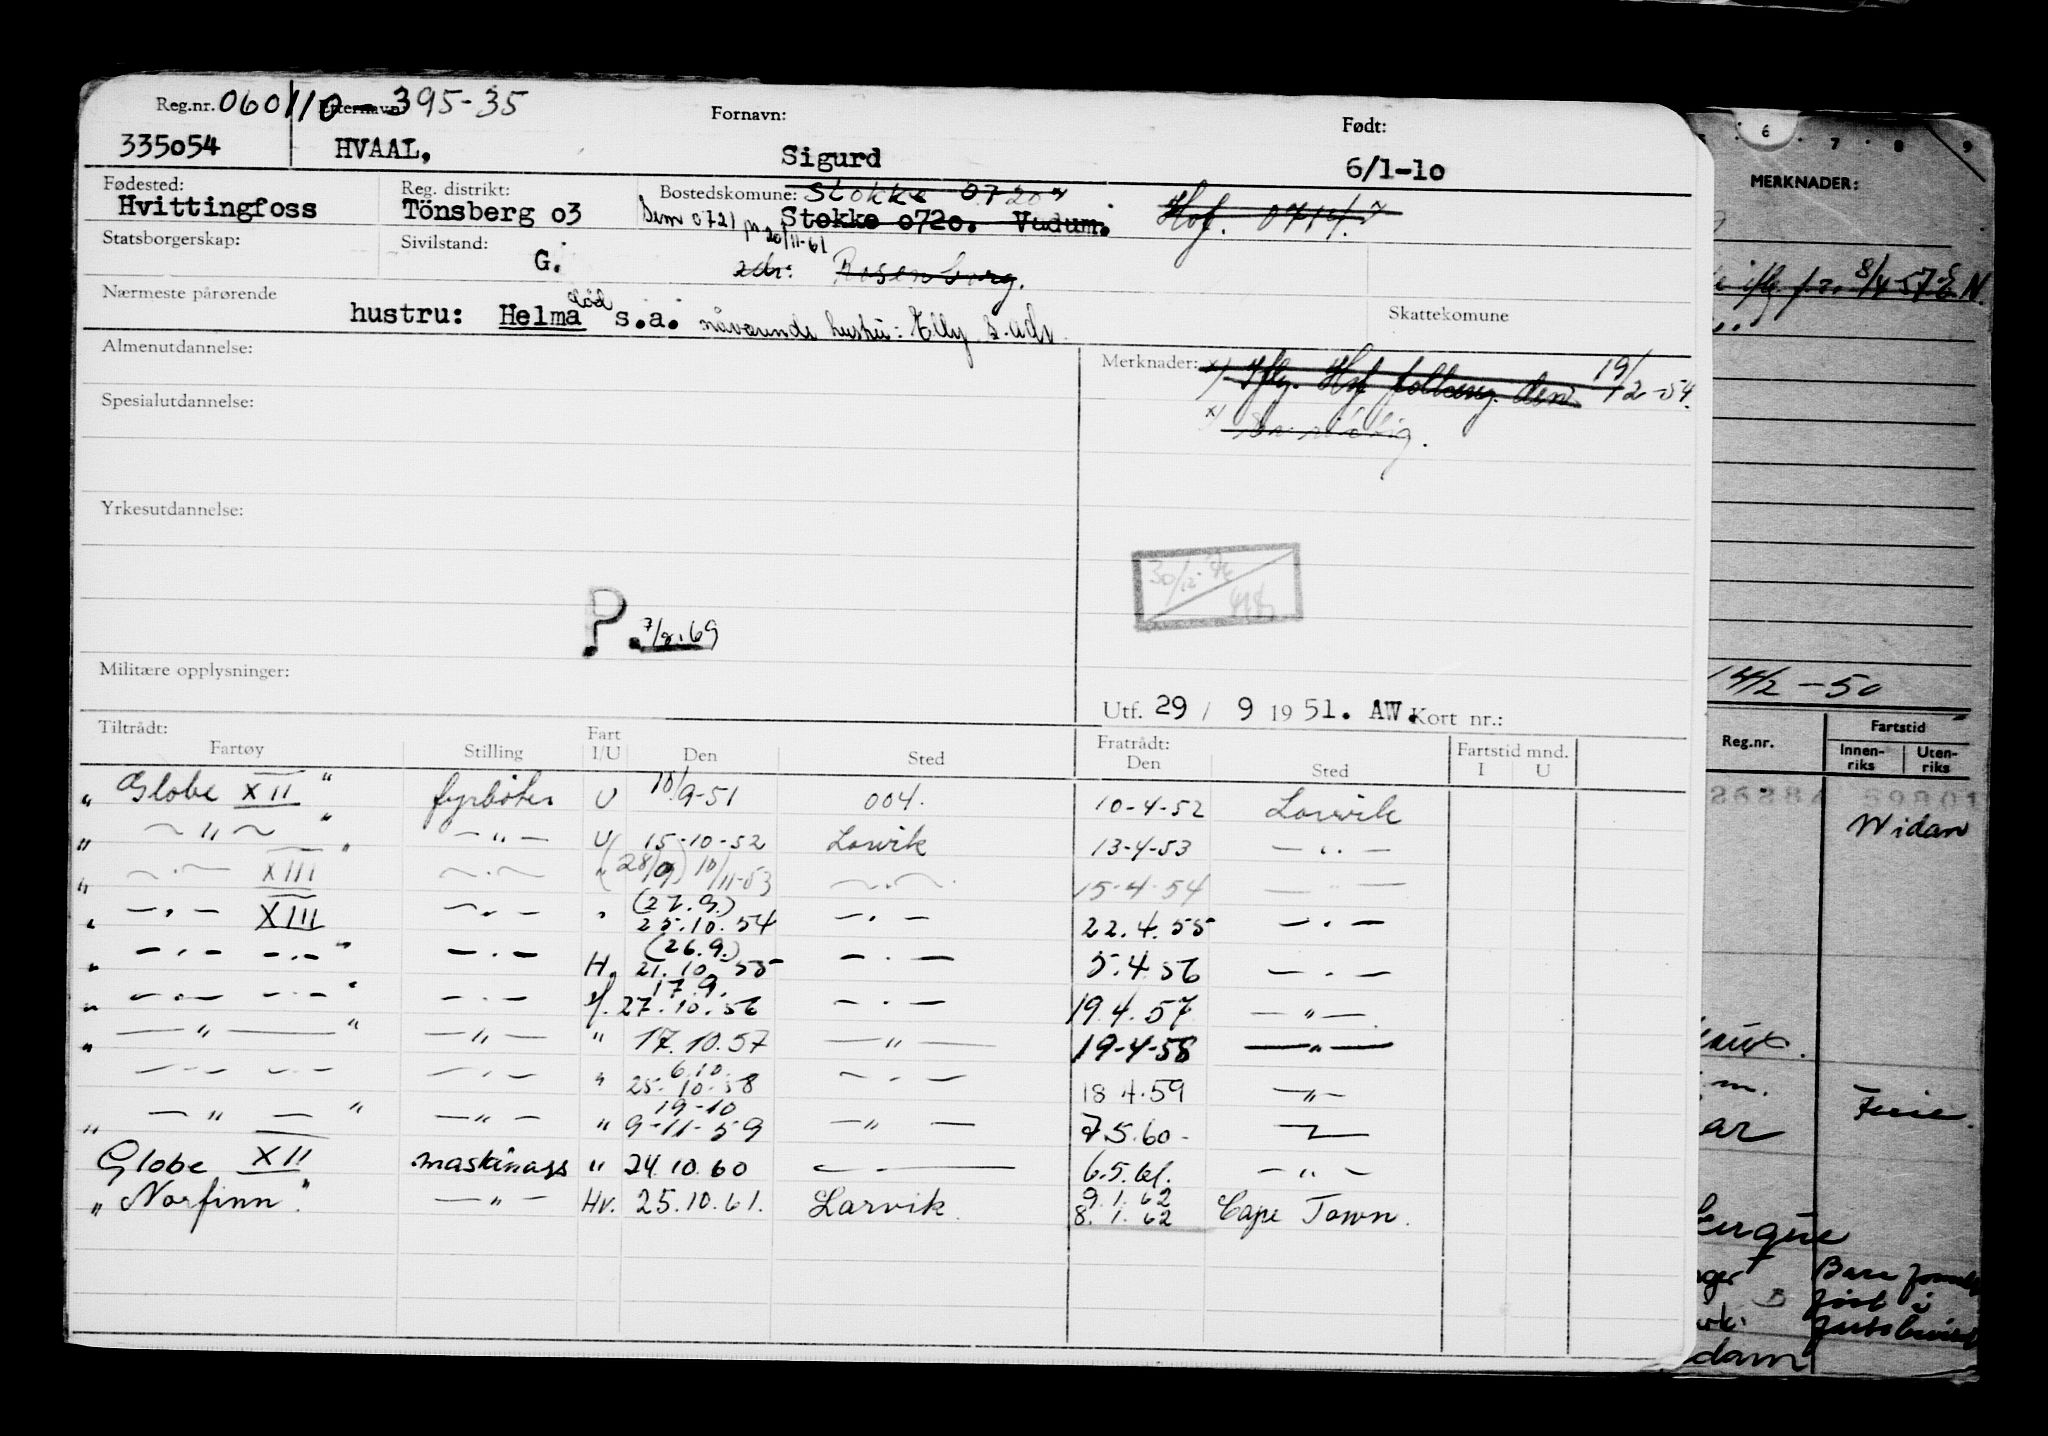 Reg.nr. 060110-395-35 Etternavn: Fornavn: Født:
335054 HVAAL, Sigurd 6/1-10
Fødested: Reg. distrikt: Bostedskomune: Stokke 0720 x
Hvittingfoss Tönsberg o3 Sem 0721 Stokke o72o. Vadum. Hof. 0714. x
Statsborgerskap: Sivilstand: 20/11-61
G. adr: Rosenborg.
Nærmeste pårørende Skattekomune
hustru: Helma död s.a. nåværende hustru: Elly s. adr.
Almenutdannelse: Merknader: x) Iflg. Hof folkereg. den 19/2-54.
Spesialutdannelse: x)
Yrkesutdannelse:
30/12
P. 7/2.69
Militære opplysninger:
Utf. 29 / 9 19 51. AW. Kort nr.:
Tiltrådt: Fart Fratrådt: Fartstid mnd.
Fartøy Stilling I/U Den Sted Den Sted I U
" Globe XII " fyrbøter U 10/9-51 004. 10-4-52 Larvik
" — " — " — " — U 15-10-52 Larvik 13-4-53 — " —
" — " — XIII " — " — " (28/9) 10/11-53 — " — 15-4-54 — " —
" — " — XIII — " — " (27.9.) 25.10.54 — " — 22.4.55 — " —
" — " — — " — " — " — H. (26.9.) 21.10.55 — " — 5.4.56 — " —
" — " — — " — " — " — 17.9. 27.10.56 — " — 19.4.57 — " —
" — " — " — " — " 17.10.57 — " — 19-4-58 — " —
— " — — " — — " — " 6.10. 25.10.58 — " — 18.4.59 — " —
" — " — " — " — " 19-10 9-11-59 — " — 7.5.60 —
Globe XII maskinass " 24.10.60 — 6.5.61. — " —
" Norfinn " — " — Hv. 25.10.61. Larvik 9.1.62 8.1.62 Cape Town.
6 7 8 9
MERKNADER:
8/4-57
14/2-50
Reg.nr. Fartstid
Innen-
riks Uten-
riks
Widan
Ferie
Bare
først i